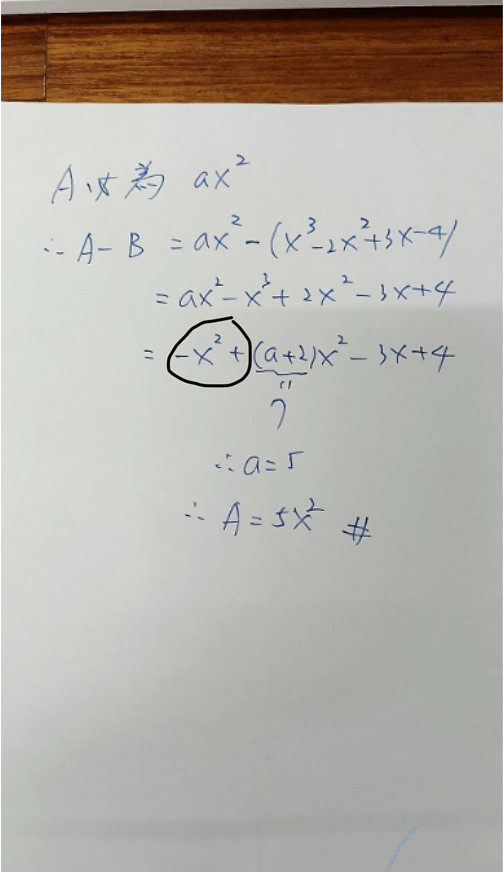 A必為 ax²
∴ A-B = ax²-(x³-2x²+3x-4)
= ax²-x³+2x²-3x+4
= -x²+(a+2)x²-3x+4
"
7
∴ a=5
∴ A=5x² #